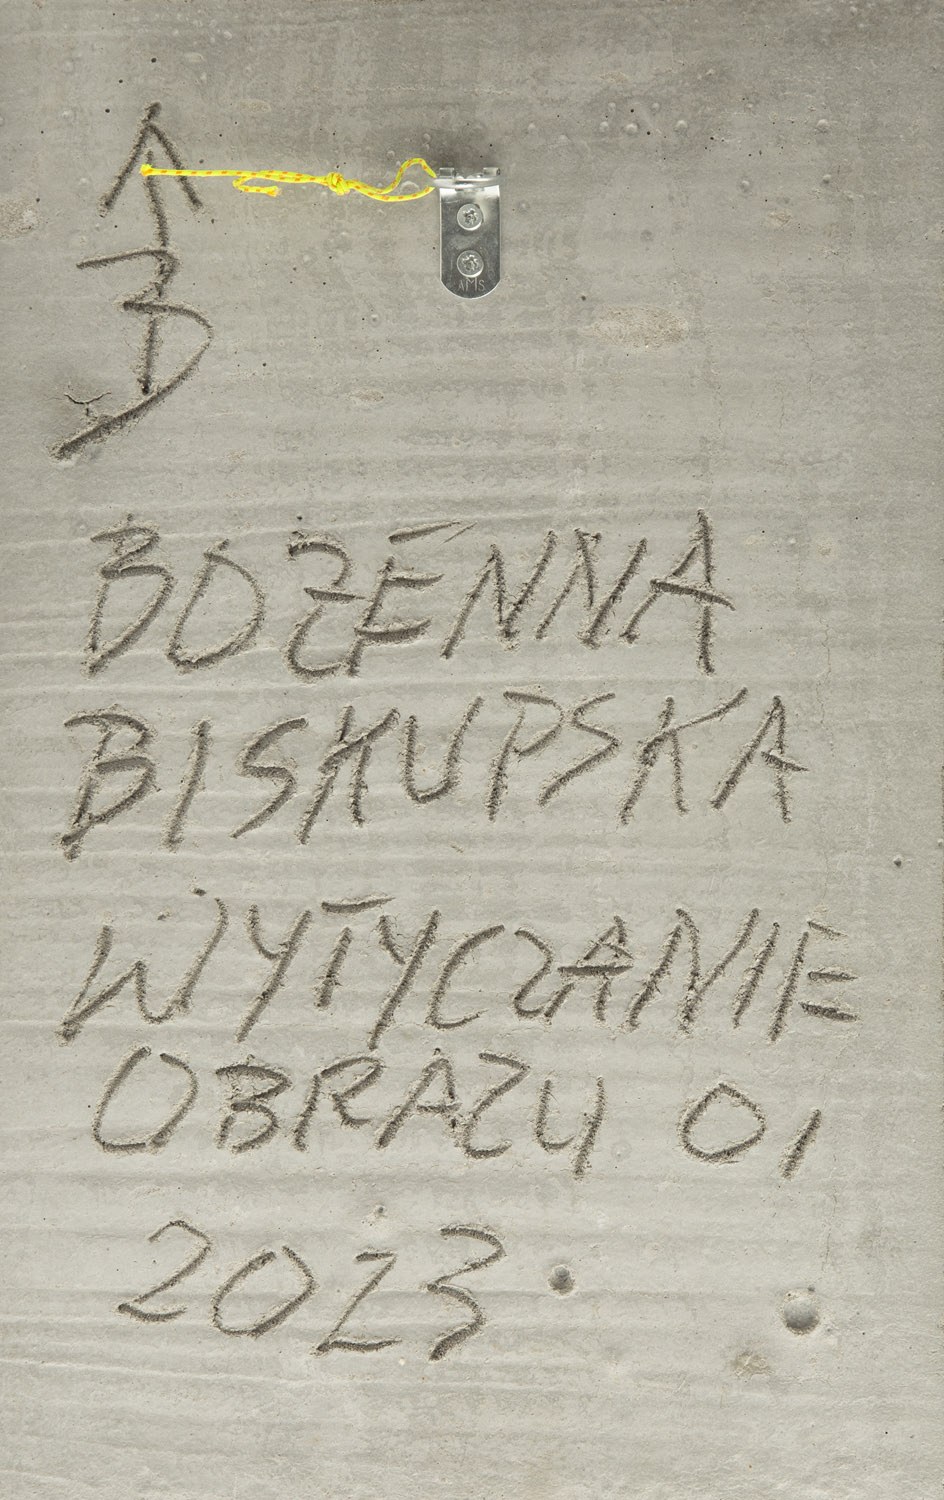 B
AMS
BOŻENNA
BISKUPSKA
WYTYCZANIE
OBRAZU 01
2023